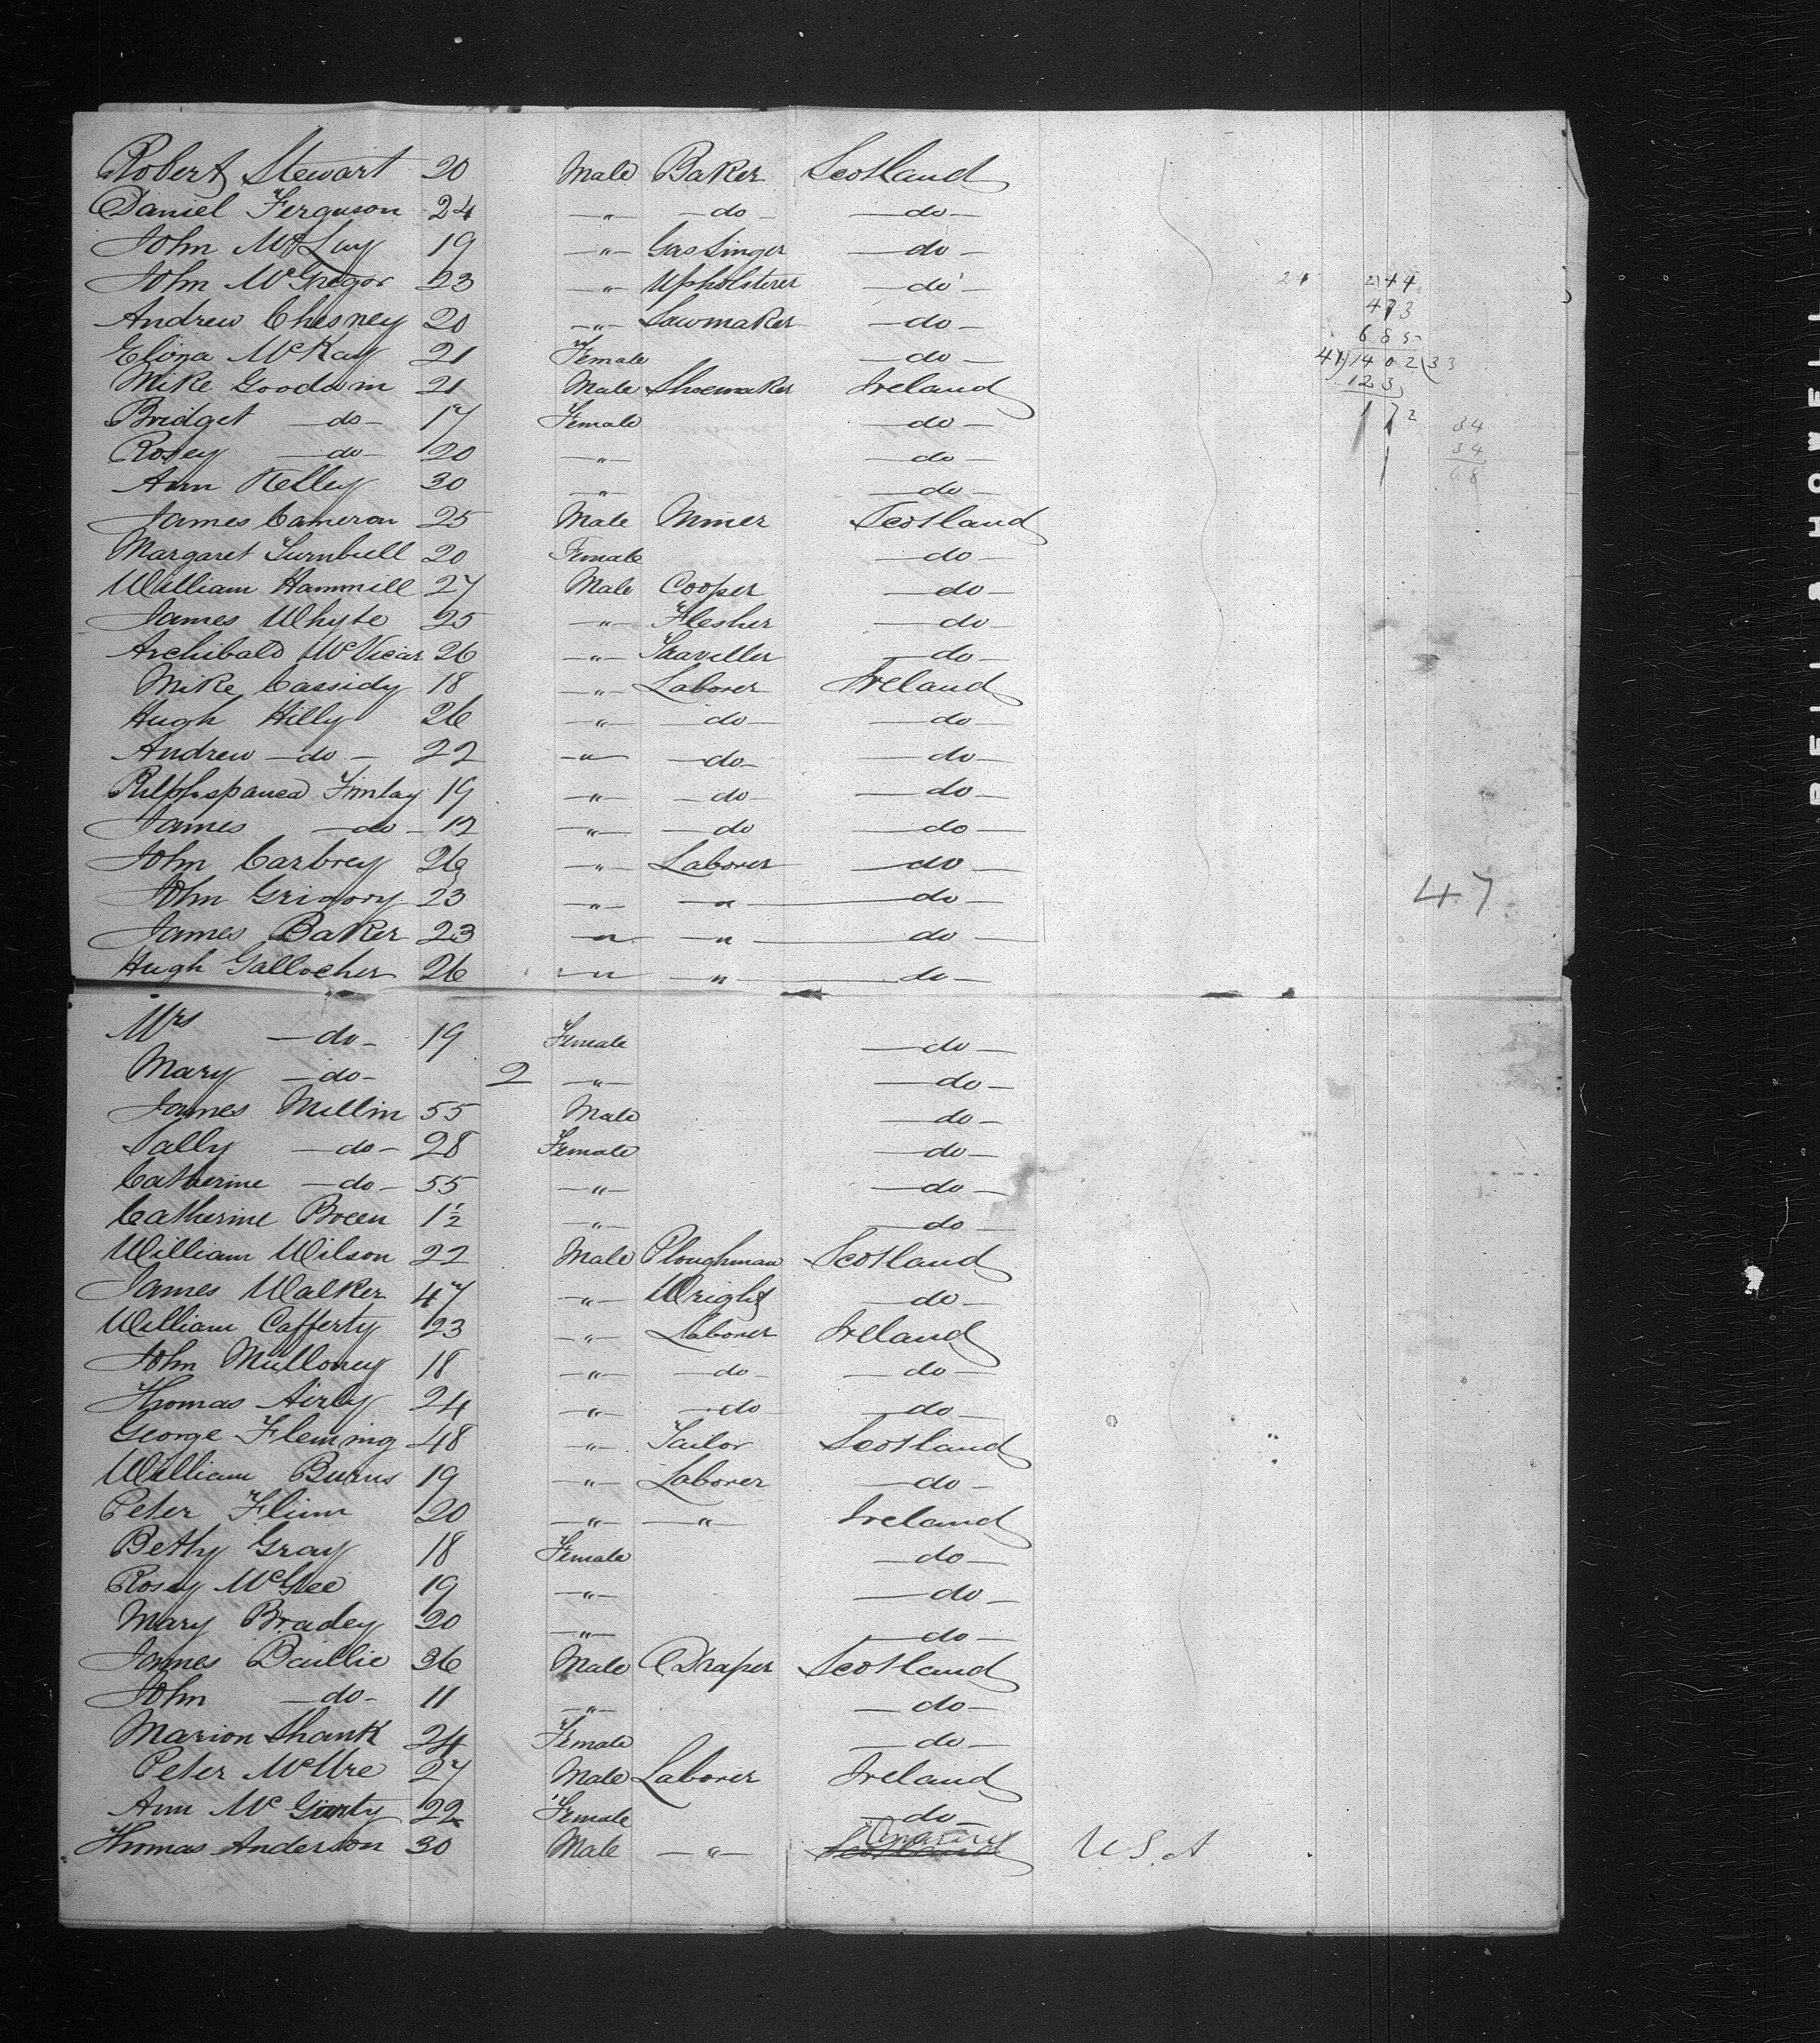 Robert Stewart 20 Male Baker Scotland
Daniel Ferguson 24 —"— —do— —do—
John McLuy 19 —"— Gas Singer —do—
John McGregor 23 —"— Upholsterer —do—
Andrew Chesney 20 —"— Sawmaker —do—
Eliza McKay 21 Female —do—
Mike Goodwin 21 Male Shoemaker Ireland
Bridget —do— 17 Female —do—
Rosey —do— 20 —"— —do—
Ann Kelley 30 —"— —do—
James Cameron 25 Male Miner Scotland
Margaret Turnbull 20 Female —do—
William Hammill 27 Male Cooper —do—
James Whyte 25 —"— Flesher —do—
Archibald McVicar 26 —"— Traveller —do—
Mike Cassidy 18 —"— Laborer Ireland
Hugh Hilly 26 —"— —do— —do—
Andrew —do— 22 —"— —do— —do—
Finlay 19 —"— —do— —do—
James —do— 12 —"— —do —do—
John Carbrey 26 —"— Laborer —do—
John Grigory 23 —"— —"— —do—
James Baker 23 —"— —"— —do—
Hugh Gallocher 26 —"— —"— —do—
Mrs —do— 19 Female —do—
Mary —do— 2 —"— —do—
James Millin 55 Male —do—
Sally —do— 28 Female —do—
Catherine —do— 55 —"— —do—
Catherine Breen 1½ —"— —do—
William Wilson 22 Male Ploughman Scotland
James Walker 47 —"— Wright —do—
William Cafferty 23 —"— Laborer Ireland
John Mulloney 18 —"— —do— —do—
Thomas Airly 24 —"— —do —do—
George Fleming 48 —"— Tailor Scotland
William Burns 19 —"— Laborer —do—
Peter Flinn 20 —"— —"— Ireland
Betty Gray 18 Female —do—
Rosey McGee 19 —"— —do—
Mary Bradey 20 —"— —do—
James Baillie 36 Male Draper Scotland
John —do— 11 —"— —do—
Marion Shank 24 Female —do—
Peter McUre 27 Male Laborer Ireland
Ann McGinty 22 Female —do—
Thomas Anderson 30 Male —"— Scotland U.S.A
21 244
473
685
41)1402(33
123
172
34
34
68
47
BELL & HOWELL